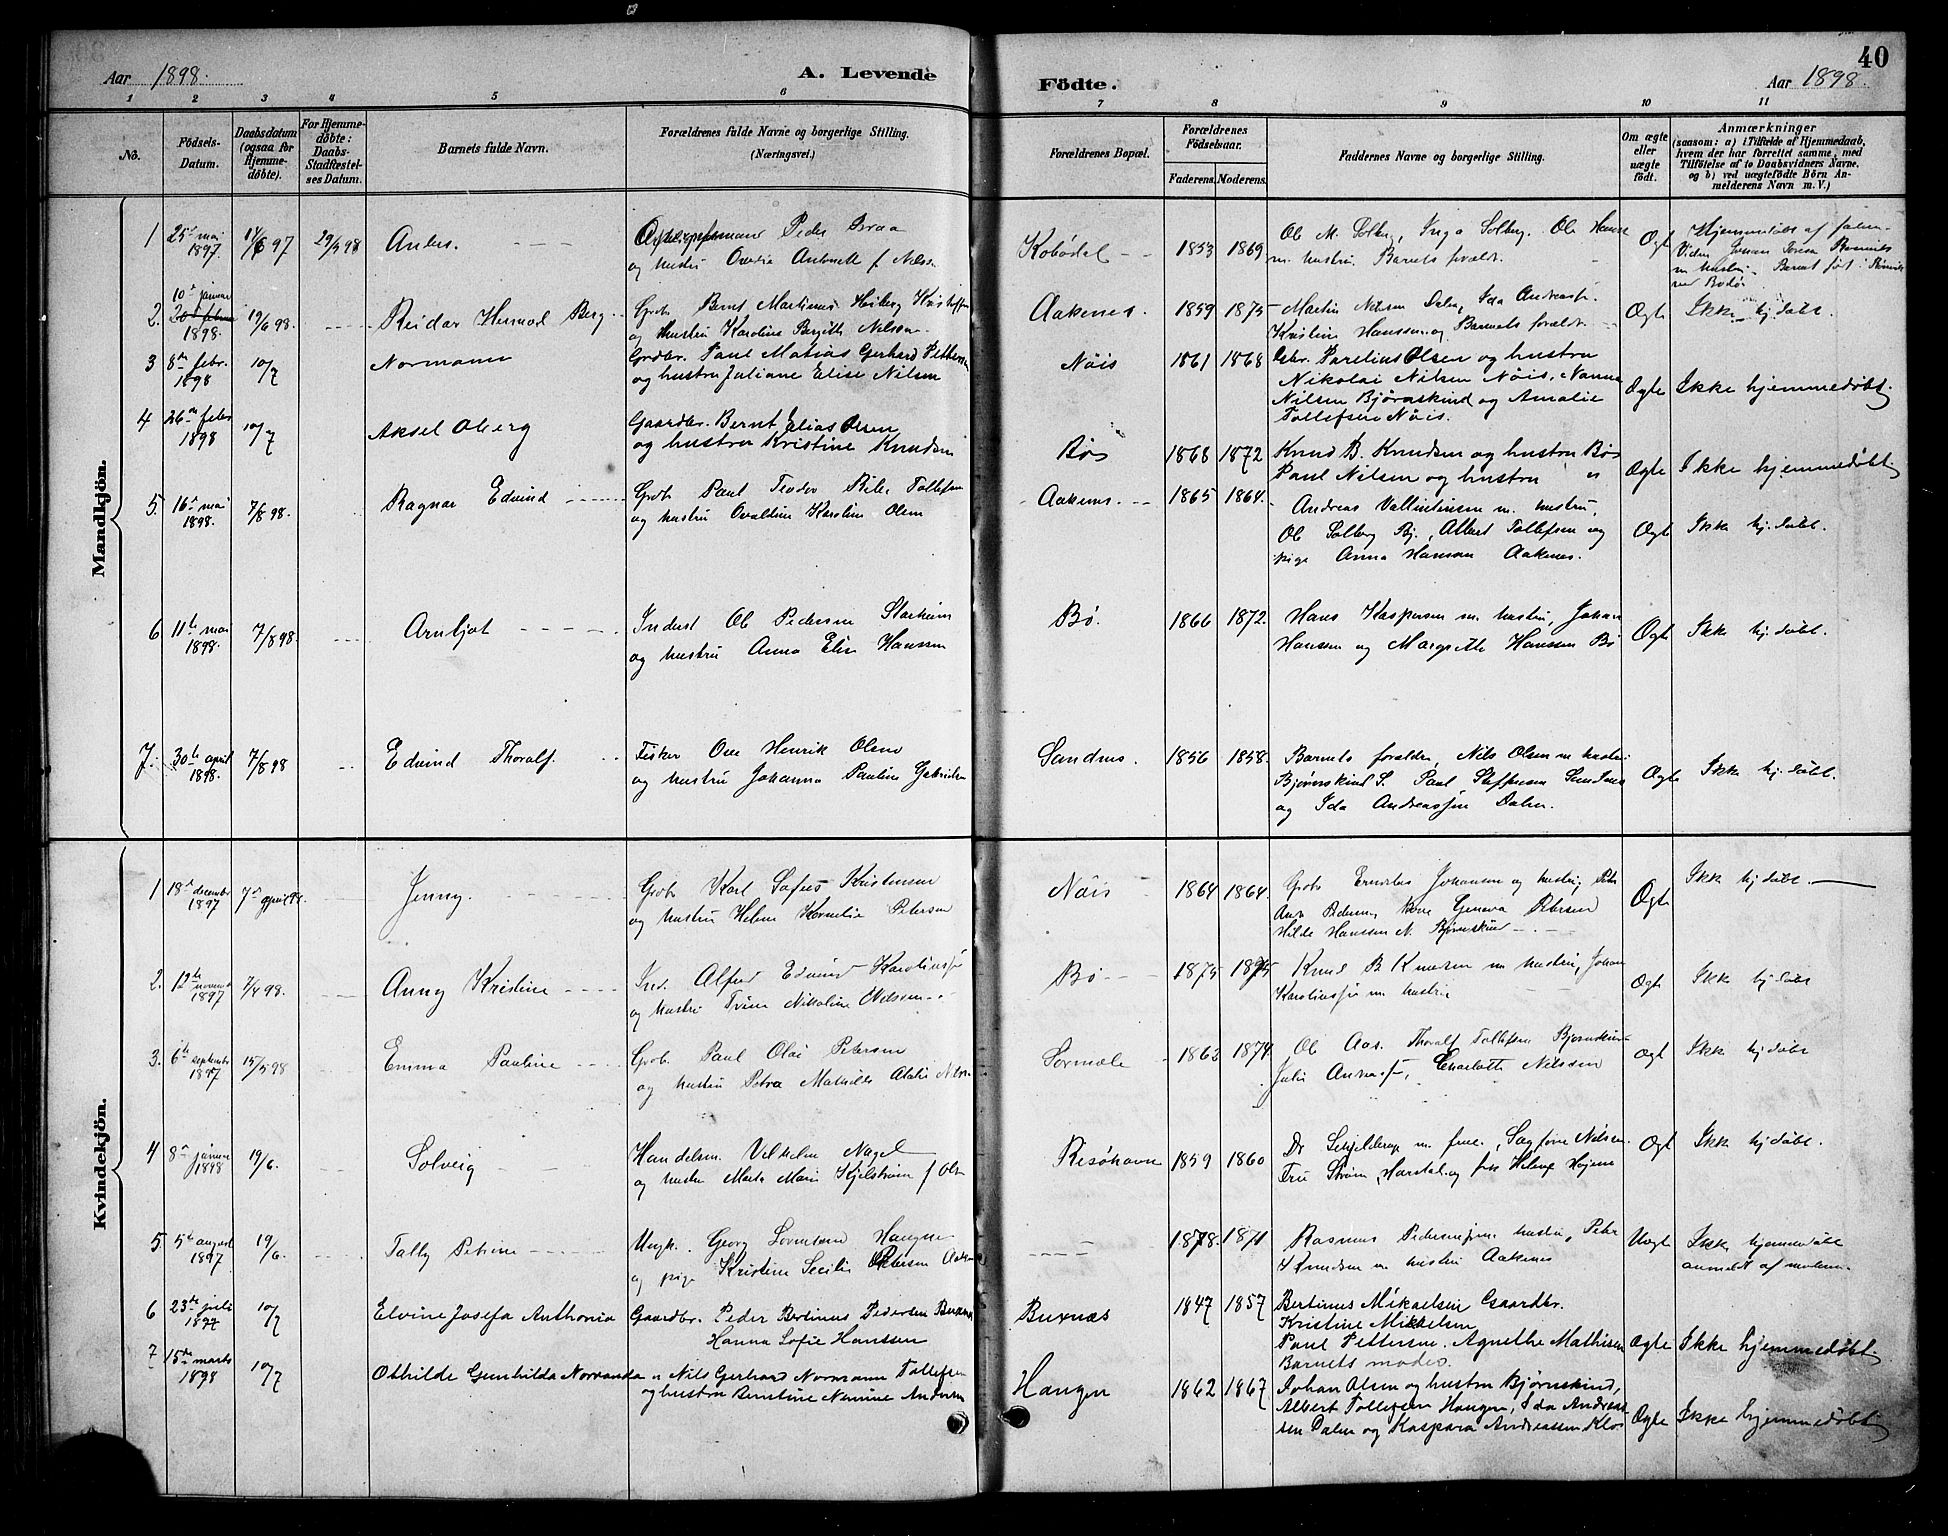 40
Aar 1898. A. Levende Fødte. Aar 1898.
1 2 3 4 5 6 7 8 9 10 11
No. Födsels-Datum. Daabsdatum (ogsaa for Hjemme-döbte). For Hjemme-döbte: Daabs-Stadfæstel-ses Datum. Barnets fulde Navn. Forældrenes fulde Navne og borgerlige Stilling. (Næringsvei.) Forældrenes Bopæl. Forældrenes Födselsaar. Faderens. Moderens. Faddernes Navne og borgerlige Stilling. Om ægte eller uægte födt. Anmærkninger (saasom: a) i Tilfælde af Hjemmedaab, hvem der har forrettet samme, med Tilföielse af to Daabsvidners Navne, og b) ved uægtefödte Börn An-melderens Navn m. V.)
Mandkjön.
1 25de mai 1897. 29/5 98 Anders. Peder Braa 1853 1869 Ole M. Solberg, Inga Solberg. Ole Hansen Ægte Hjemmedøbt af
og hustru Antonette f. m. hustru Barnets forældr.
2. 10de januar 1898. 19/6 98. Reidar Hermod Berg Grdb. Bernt Martinus Heiberg Kristoffersen Aakenes. 1859 1875 Martin Nilsen Dalen, Ida Andreassen. Ægte Ikke hj. døbt.
Hustru Karoline Bergitte Nilsen Kristine Hanssen og Barnets forældr.
3 8de febr. 1898 10/7 Normann Grdbr. Paul Matias Gerhard Pettersen Nöis 1861 1868 Gbr. Parelius Olsen og hustru
og hustru Juliane Elise Nilsen Nikolai Nilsen Nöis, Nanna Ægte Ikke hjemmedöbt
Nilsen Björnskind og Amalie
Tollefsen Nöis.
4 26de febr 1898 10/7 Aksel Oberg Gaardbr. Bernt Elias Olsen
og hustru Kristine Knudsen Bö 1868 1872 Knud B. Knudsen og hustru Bö
Paul Nilsen og hustru " Ægte Ikke hjemmedöbt
5. 16de mai 1898. 7/8 98. Ragnar Edvind Grdb. Paul Teodor Tollefsen Aakenes. 1865 1864. Andreas m. hustru,
og hustru Karoline Olsen Ole Solberg Bj., Albert Tollefsen og Ægte Ikke hj. døbt.
pige Anna Hansen Aakenes.
6 11te mai 1898. 7/8 98. Arnljot Inderst Ole Pedersen Bø. 1866 1872. Hans Kaspersen m. hustru, Johan Ægte Ikke hj. døbt.
og hustru Anna Elise Hanssen Hanssen og Margrethe Hanssen Bø
7. 30te april 1898. 7/8 98 Edvind Thoralf. Fisker Ove Henrik Olsen Sandnes. 1856 1858. Barnets forældre, Nils Olsen m hustru Ægte Ikke hj. døbt.
og hustru Johanna Pauline Gabrielsen Bjørnskind S. Paul Steffensen Sandnes
og Ida Andreassen Dalen.
Kvindekjön.
1 18de december 1897 7de april 98. Jenny. Grdb. Karl Sofus Kristensen Nöis 1864 1864. Grdb. Johansen og hustru, Ægte Ikke hj. døbt.
og hustru Helene Kornelie Petersen Pedersen, Geneva Petersen
Hilde Hanssen N. Bjørnskind
2. 12te november 1897 7/4 98. Anny Kristine Ind. Alfred Edvind Karoliussen Bø 1875 1875 Knud B Knudsen m hustru, Johan Ægte Ikke hj. døbt
og hustru Trine Nikoline Nilsen Karoliussen m hustru
3. 6te september 1897 15/5 98 Emma Pauline Grdb. Paul Olai Petersen Sørmæle 1863 1874. Ole Aas. Thoralf Tollefsen Bjørnskind Ægte Ikke hj. døbt
og hustru Petra Mathilde Julie Andreassen, Charlotte Nilssen
4 8de januar 1898 19/6. Solveig Handelsm. Vilhelm Nagel Risøhavn 1859 1860 Dr Schjelderup m. frue, Sagfører Nilsen. Ægte Ikke hj. døbt.
og hustru Marta Marie Kjelstrøm f. Olsen Fru Strøm, Harstad og frk Helene
5. 5te august 1897 19/6. Tally Petrine Ungk. Georg Haugen 1878. 1871 Rasmus Pedersen hustru, Peter Uægte Ikke hjemmedøbt
og pige Kristine Secilie Petersen Knudsen m hustru Aakenes anmeldt af moderen.
6 23de juli 1897 10/7 Elvine Josefa Anthonia Gaardbr. Peder Bertinus Pedersen Buxnæs Buxnæs 1847 1857 Bertinus Mikaelsen Gaardbr.
Hanna Sofie Hanssen Kristine Mikkelsen
Paul Pettersen. Agnethe Mathisen Ægte Ikke hjemmedöbt
Barnets moder.
7 15de marts 1898 10/7 Othilde Gunhilda Norvanda " Nils Gerhard Normann Tollefsen Haugen 1862 1867 Johan Olsen og hustru Björnskind,
og hustru Ernstine Nanine Andersen Albert Tollefsen Haugen, Ida Andreas-
sen Dalen og Kaspara Andreassen Klo. Ægte Ikke hjemmedöbt